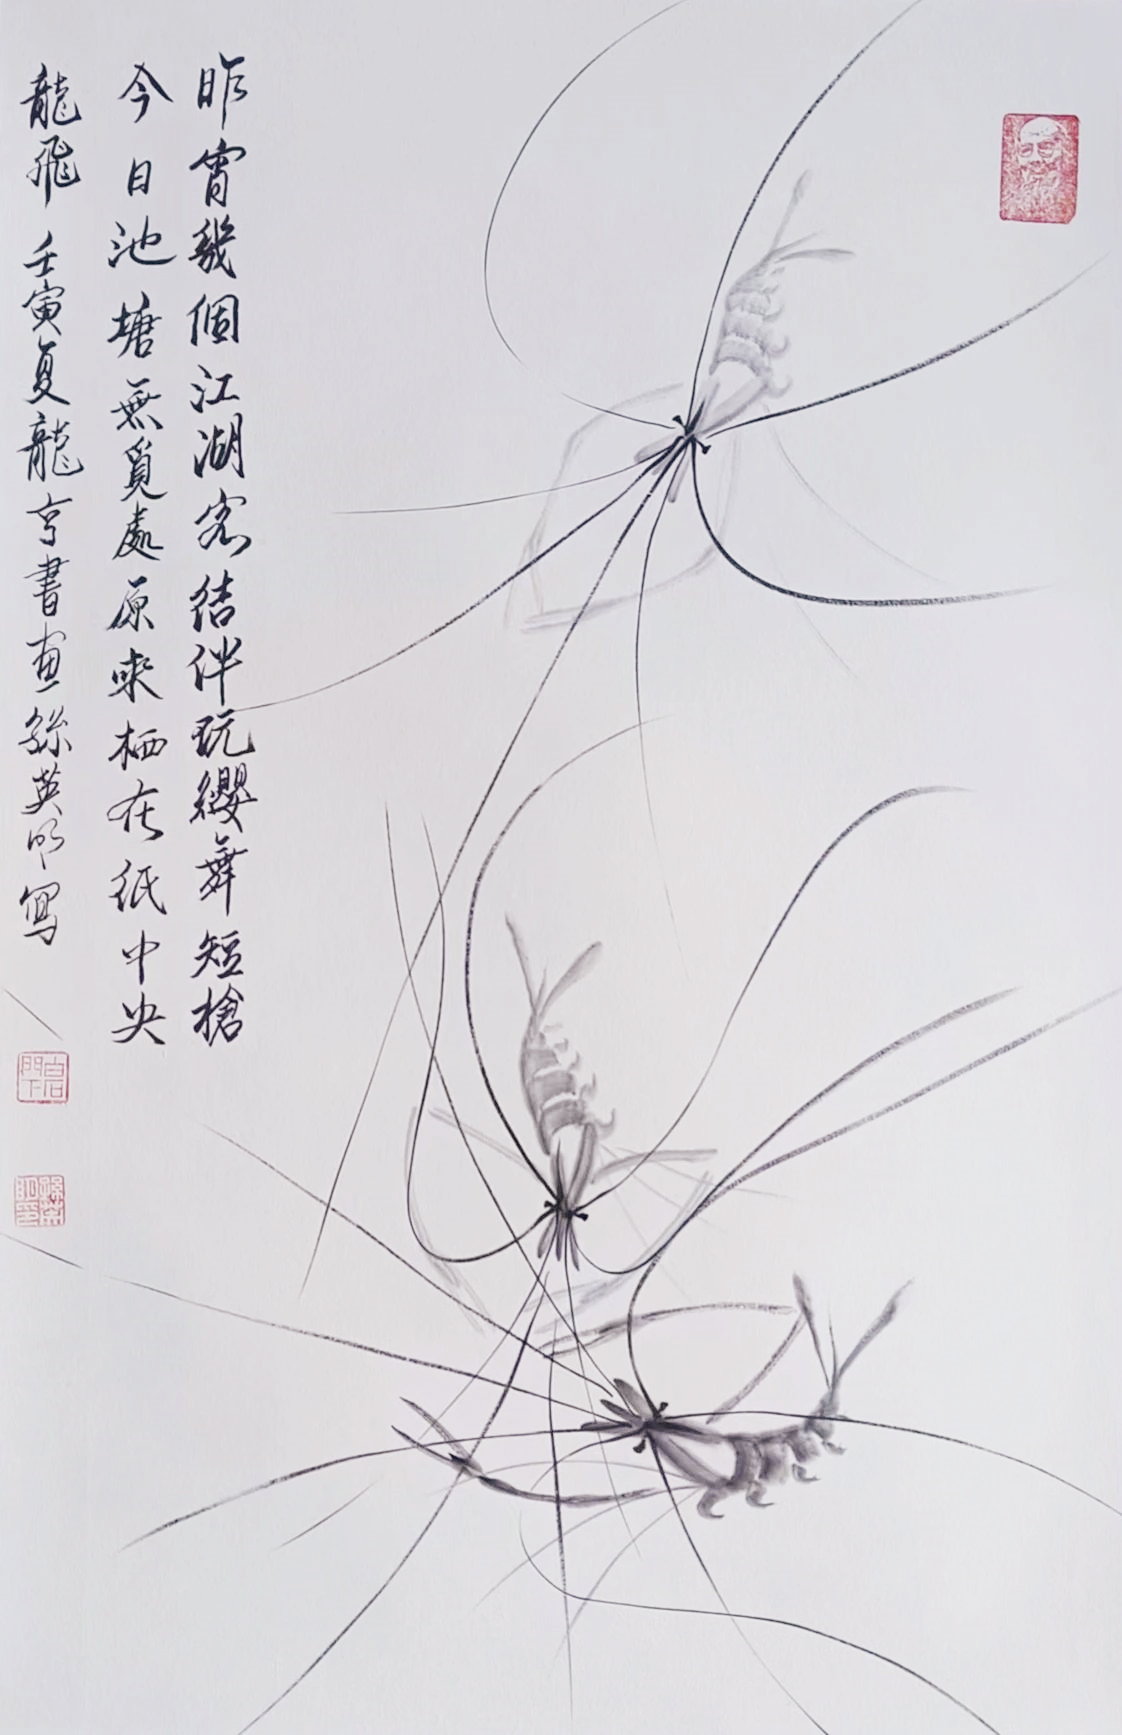 昨宵幾個江湖客結伴玩纓舞短槍
今日池塘無覓處原來栖在纸中央
龍飛 壬寅夏龍亨書畫孫英明寫
白石門下
孫英明印